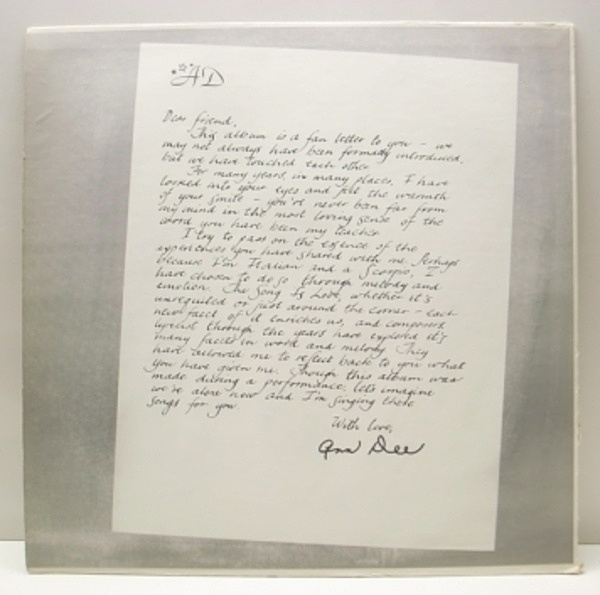 AD
Dear friend,
This album is a fan letter to you - we
may not always have been formally introduced,
but we have touched each other.
For many years, in many places, I have
looked into your eyes and felt the warmth
of your smile - you've never been far from
my mind in the most loving sense of the
word you have been my teacher.
I try to pass on the essence of the
experiences you have shared with me. Perhaps
because I'm Italian and a Scorpio, I
have chosen to do so through melody and
emotion. The song is Love, whether it's
unrequited or just around the corner - each
new facet of it enriches us, and composers
lyricist through the years have explored it's
many faces in word and melody. They
have allowed me to reflect back to you what
you have given me. Though this album was
made during a performance, let's imagine
we're alone now and I'm singing these
songs for you.
With love,
Ann Dee